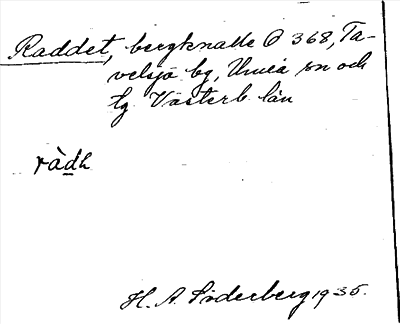 Raddet, bergknalle Ö 368, Ta-
velsjö by, Umeå sn och
tg Västerb. län
ràdh
H. A. Söderberg 1935.